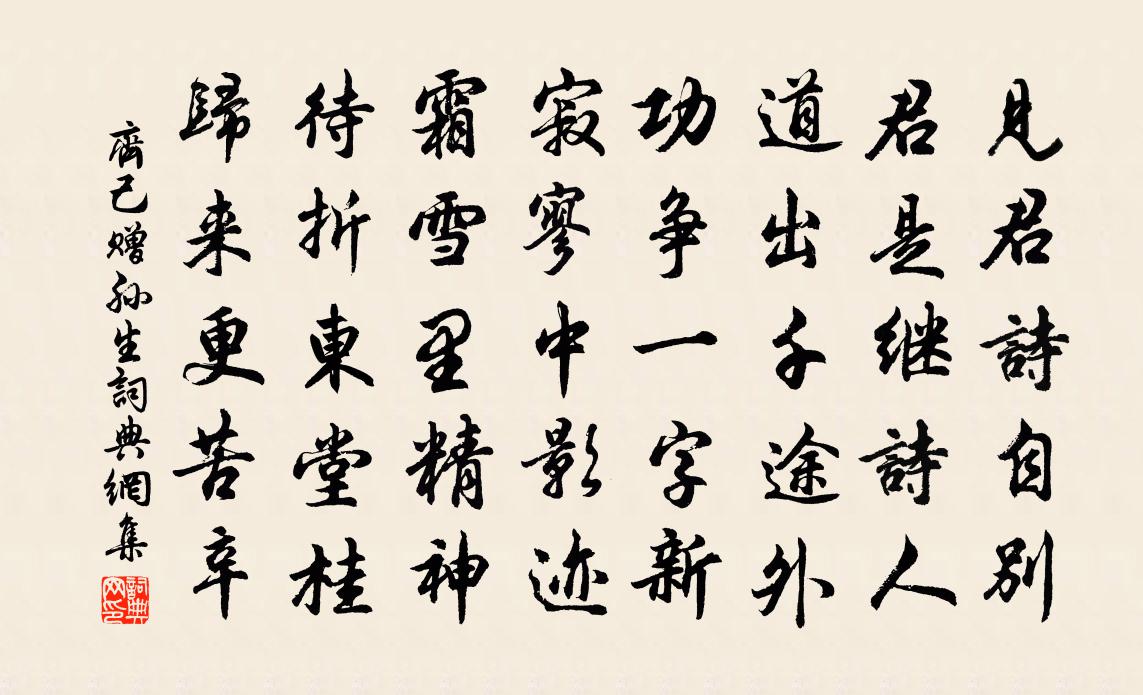 見君詩自別
君是继詩人
道出千途外
功争一字新
寂寥中影迹
霜雪里精神
待折東堂桂
歸来更苦辛
齊己赠孙生詞典網集
詞典网印